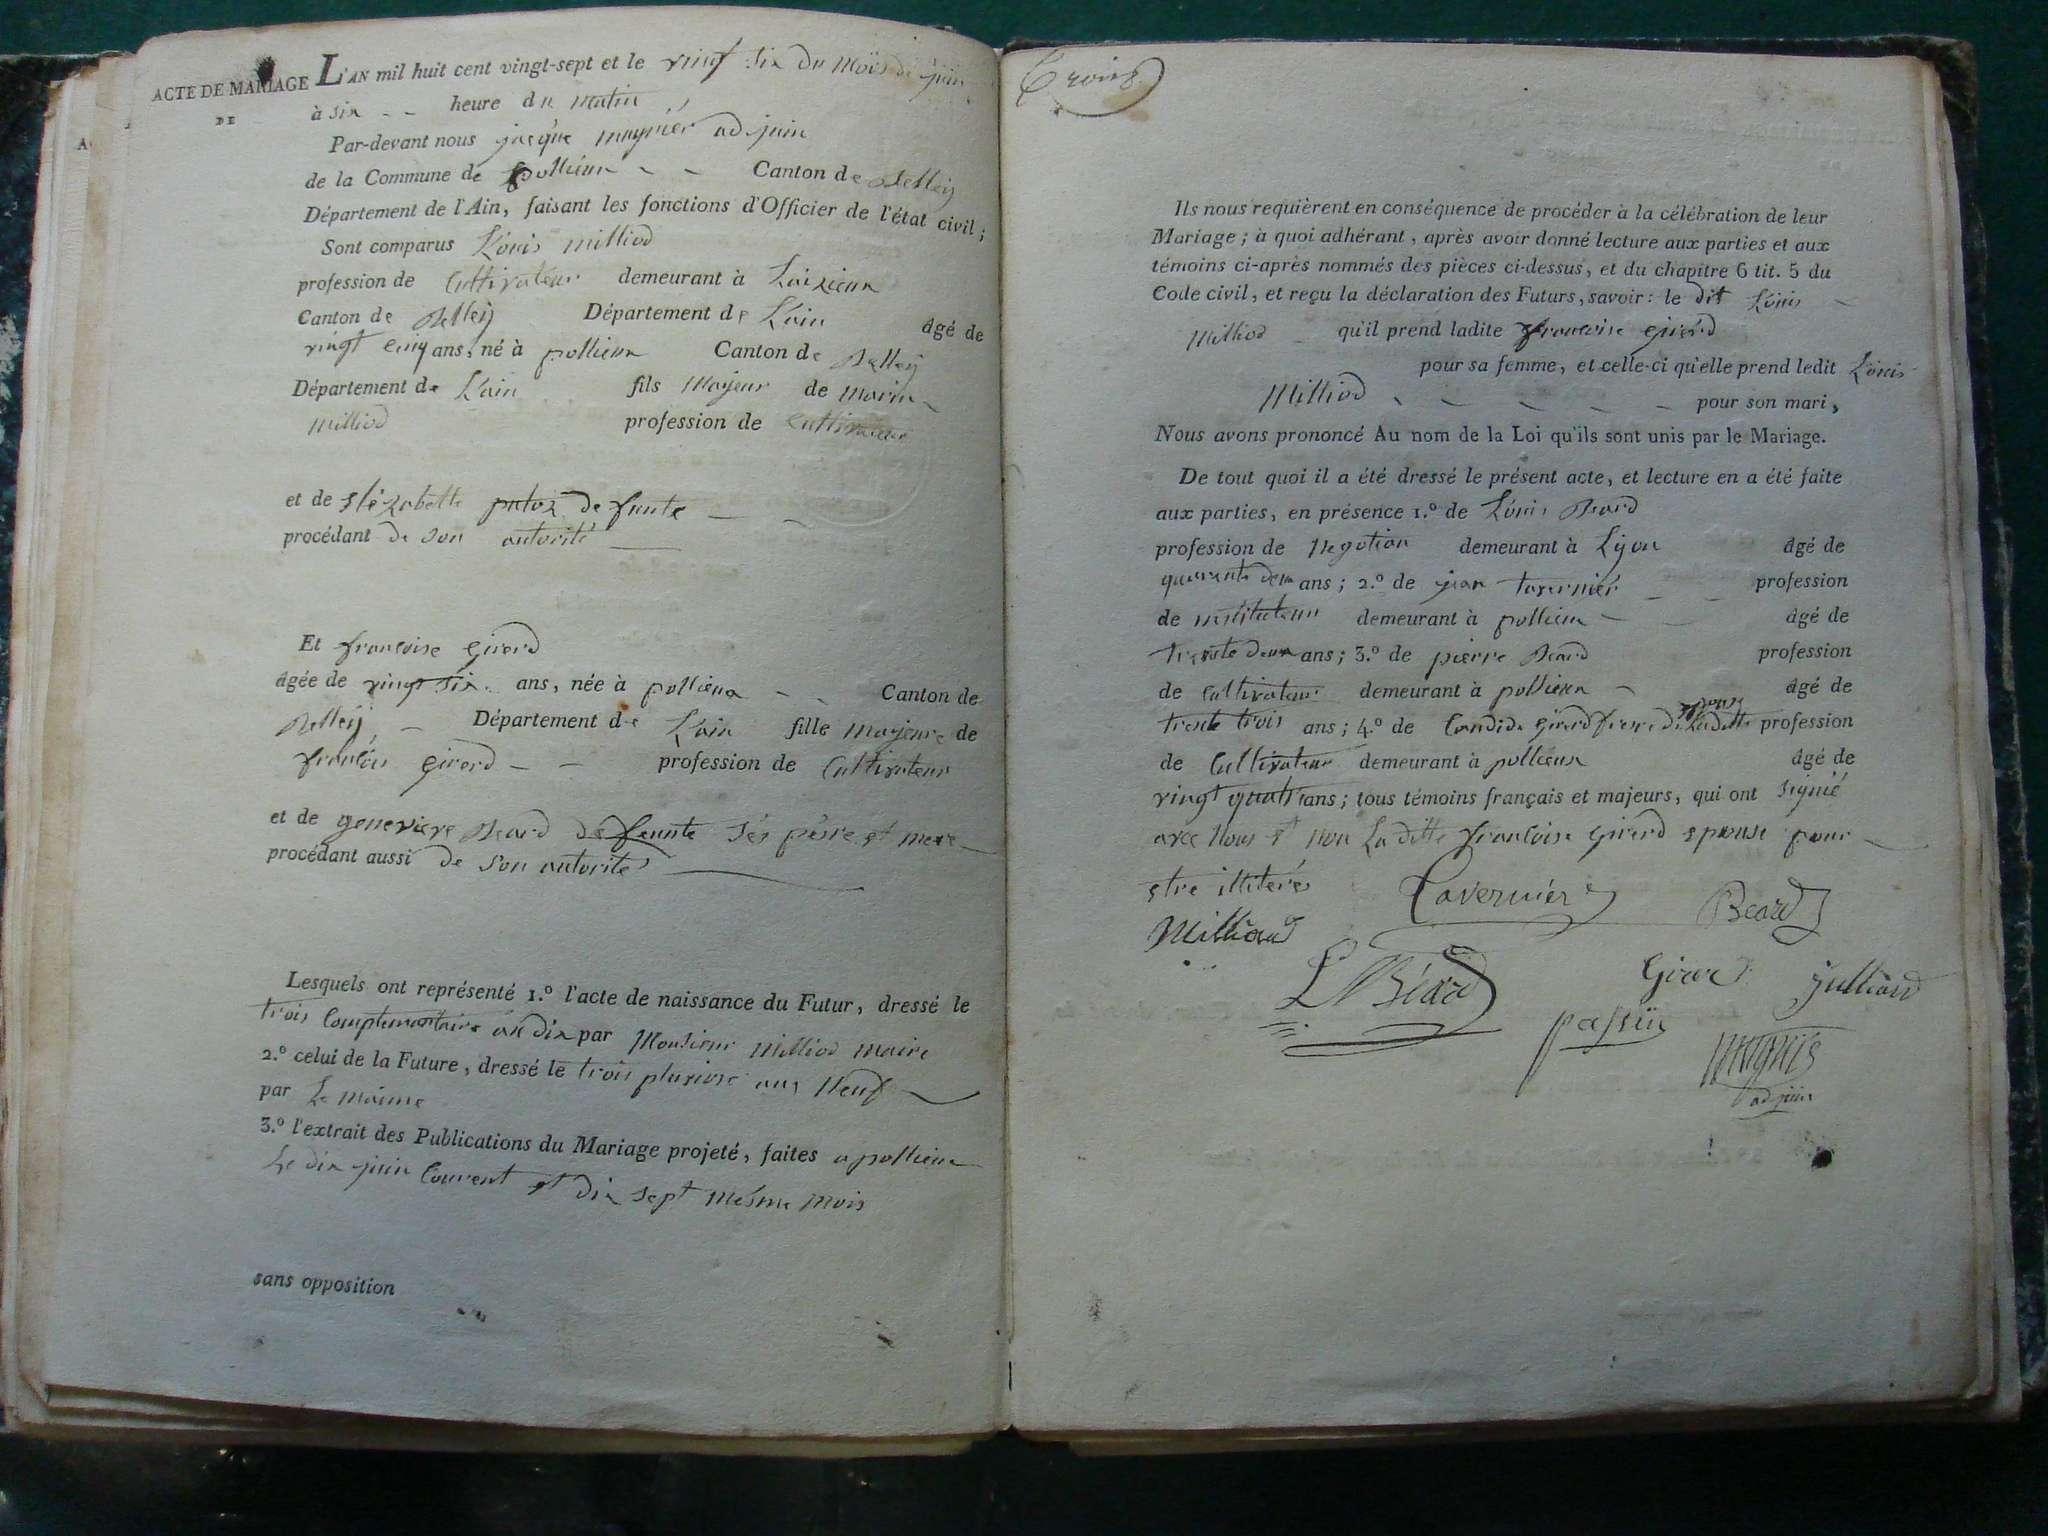 ACTE DE MARIAGE
DE
L'AN mil huit cent vingt-sept et le vingt six du mois de juin
à six - - heure du matin
Par-devant nous jacque magnier adjuin
de la Commune de pollieux - - Canton de Belley
Département de l'Ain, faisant les fonctions d'Officier de l'état civil;
Sont comparus Louis milliod
profession de Cultivateur demeurant à
Canton de Belley Département de L'ain âgé de
vingt cinq ans, né à pollieux Canton de Belley
Département de L'ain fils Majeur de Marin
Milliod profession de Cultivateur
et de defunte
procédant de son autorité
Et francoise Girerd
âgée de vingt six ans, née à pollieux - - Canton de
Belley - Département de L'ain fille Majeure de
francois Girerd - - profession de Cultivateur
et de genevieve Beard defeunte ses père et mere
procédant aussi de son autorité
Lesquels ont représenté 1.º l'acte de naissance du Futur, dressé le
trois Complementaire an dix par Monsieur Milliod maire
2.º celui de la Future, dressé le trois pluviose ans Neuf
par Le maime
3.º l'extrait des Publications du Mariage projeté, faites a pollieux
Le dix juin Courent et dix sept mesme mois
sans opposition
Ils nous requièrent en conséquence de procéder à la célébration de leur
Mariage; à quoi adhérant, après avoir donné lecture aux parties et aux
témoins ci-après nommés des pièces ci-dessus, et du chapitre 6 tit. 5 du
Code civil, et reçu la déclaration des Futurs, savoir: le dit Louis
Milliod qu'il prend ladite francoise Girerd
pour sa femme, et celle-ci qu'elle prend ledit Louis
Milliod - - - - - - pour son mari,
Nous avons prononcé Au nom de la Loi qu'ils sont unis par le Mariage.
De tout quoi il a été dressé le présent acte, et lecture en a été faite
aux parties, en présence 1.º de Louis Beard
profession de Negotian demeurant à Lyon âgé de
quarante deux ans; 2.º de jean tavernier - - profession
de instituteur demeurant à pollieux - - âgé de
trente deux ans; 3.º de pierre Beard profession
de Cultivateur demeurant à pollieux - âgé de
trente trois ans; 4.º de Candide Girerd frere de Laditte profession
de Cultivateur demeurant à pollieux âgé de
vingt quatre ans; tous témoins français et majeurs, qui ont signié
avec Nous et non Laditte francoise Girerd epouse pour
etre illiteré
Tavernier
Beard
Milliaud
L Béard
Girer
Julliard
adjuin